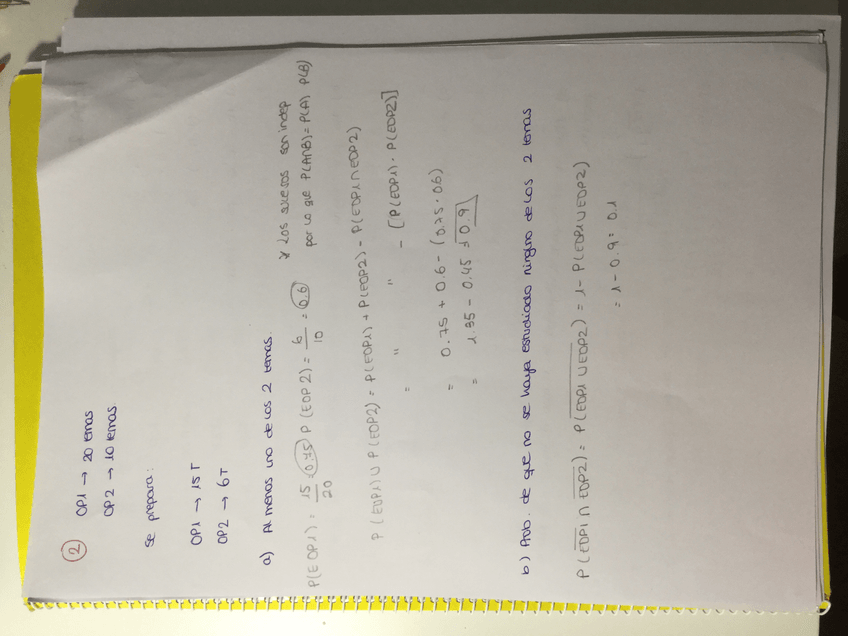 2
OP1 → 20 temas
OP2 → 10 temas.
Se prepara:
OP1 → 15 T
OP2 → 6 T
a) Al menos uno de los 2 temas.
P(EOP1) = 15/20 = 0.75 P(EOP2) = 6/10 = 0.6
* Los sucesos son indep
por lo que P(A∩B) = P(A) P(B)
P(EOP1) ∪ P(EOP2) = P(EOP1) + P(EOP2) - P(EOP1 ∩ EOP2)
= " " - [P(EOP1) · P(EOP2)]
= 0.75 + 0.6 - (0.75 · 0.6)
= 1.35 - 0.45 = 0.9
b) Prob. de que no se haya estudiado ninguno de los 2 temas
P(E̅O̅P̅1̅ ∩ E̅O̅P̅2̅) = P(E̅O̅P̅1̅ ̅∪̅ ̅E̅O̅P̅2̅) = 1 - P(EOP1 ∪ EOP2)
= 1 - 0.9 = 0.1